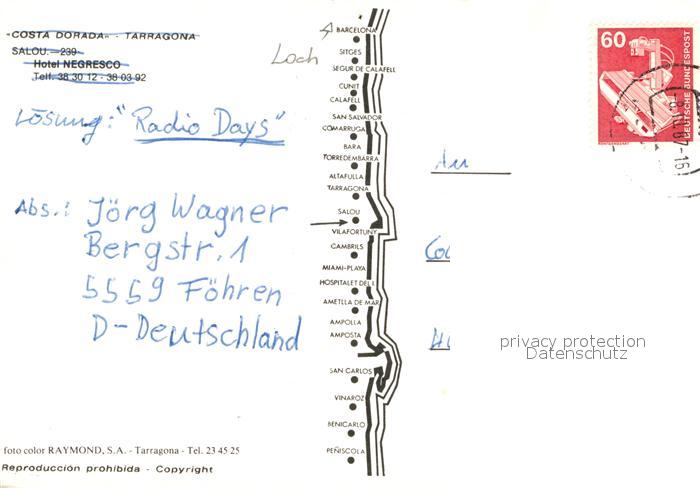 "COSTA DORADA" - TARRAGONA
SALOU. - 239-
Hotel NEGRESCO
Telf. 38 30 12 - 38 03 92
Loch
Lösung: "Radio Days"
Abs.: Jörg Wagner
Bergstr. 1
5559 Föhren
D-Deutschland
foto color RAYMOND, S.A. - Tarragona - Tel. 23 45 25
Reproducción prohibida - Copyright
BARCELONA
SITGES
SEGUR DE CALAFELL
CUNIT
CALAFELL
SAN SALVADOR
COMARRUGA
BARA
TORREDEMBARRA
ALTAFULLA
TARRAGONA
SALOU
VILAFORTUNY
CAMBRILS
MIAMI-PLAYA
HOSPITALET DEL I.
AMETLLA DE MAR
AMPOLLA
AMPOSTA
SAN CARLOS
VINAROZ
BENICARLO
PEÑISCOLA
60
DEUTSCHE BUNDESPOST
-8.10.87-16
An
privacy protection
Datenschutz